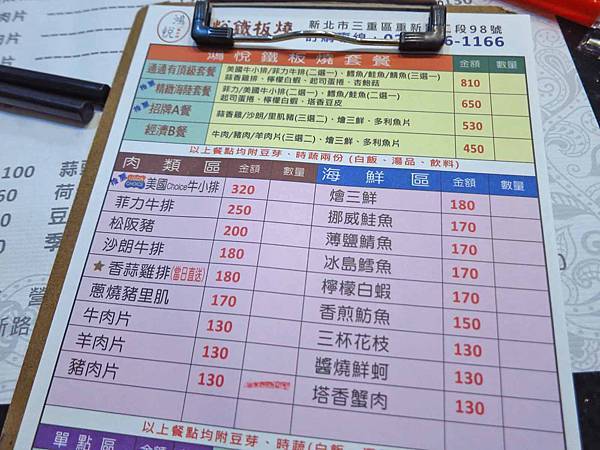 鴻悅
鐵板燒
新北市三重區重新路二段98號
6-1166
鴻悅鐵板燒套餐 金額 數量
通通有頂級套餐 美國牛小排/菲力牛排(二選一)、鱈魚/鮭魚/鯖魚(三選一)
蒜香雞排、檸檬白蝦、起司蛋捲、杏鮑菇 810
推薦 精緻海陸套餐 菲力/美國牛小排(二選一)、鱈魚/鮭魚(二選一)
檸檬白蝦、起司蛋捲、塔香豆皮 650
推薦 招牌A餐 蒜香雞/沙朗/里肌豬(三選二)、燴三鮮、多利魚片 530
經濟B餐 牛肉/豬肉/羊肉片(三選二)、燴三鮮、多利魚片 450
以上餐點均附豆芽、時蔬兩份(白飯、湯品、飲料)
肉類區 金額 數量 海鮮區 金額 數量
推薦 美國Choice牛小排 320 燴三鮮 180
菲力牛排 250 挪威鮭魚 170
松阪豬 200 薄鹽鯖魚 170
沙朗牛排 180 冰島鱈魚 170
★香蒜雞排(當日直送) 180 檸檬白蝦 170
蔥燒豬里肌 170 香煎魴魚 150
牛肉片 130 三杯花枝 130
羊肉片 130 醬燒鮮蚵 130
豬肉片 130 塔香蟹肉 130
以上餐點均附豆芽、時蔬(白飯、
單點區 金額 數量
100
60
150
蒜
荷
豆
季
營
新路
肉片
片